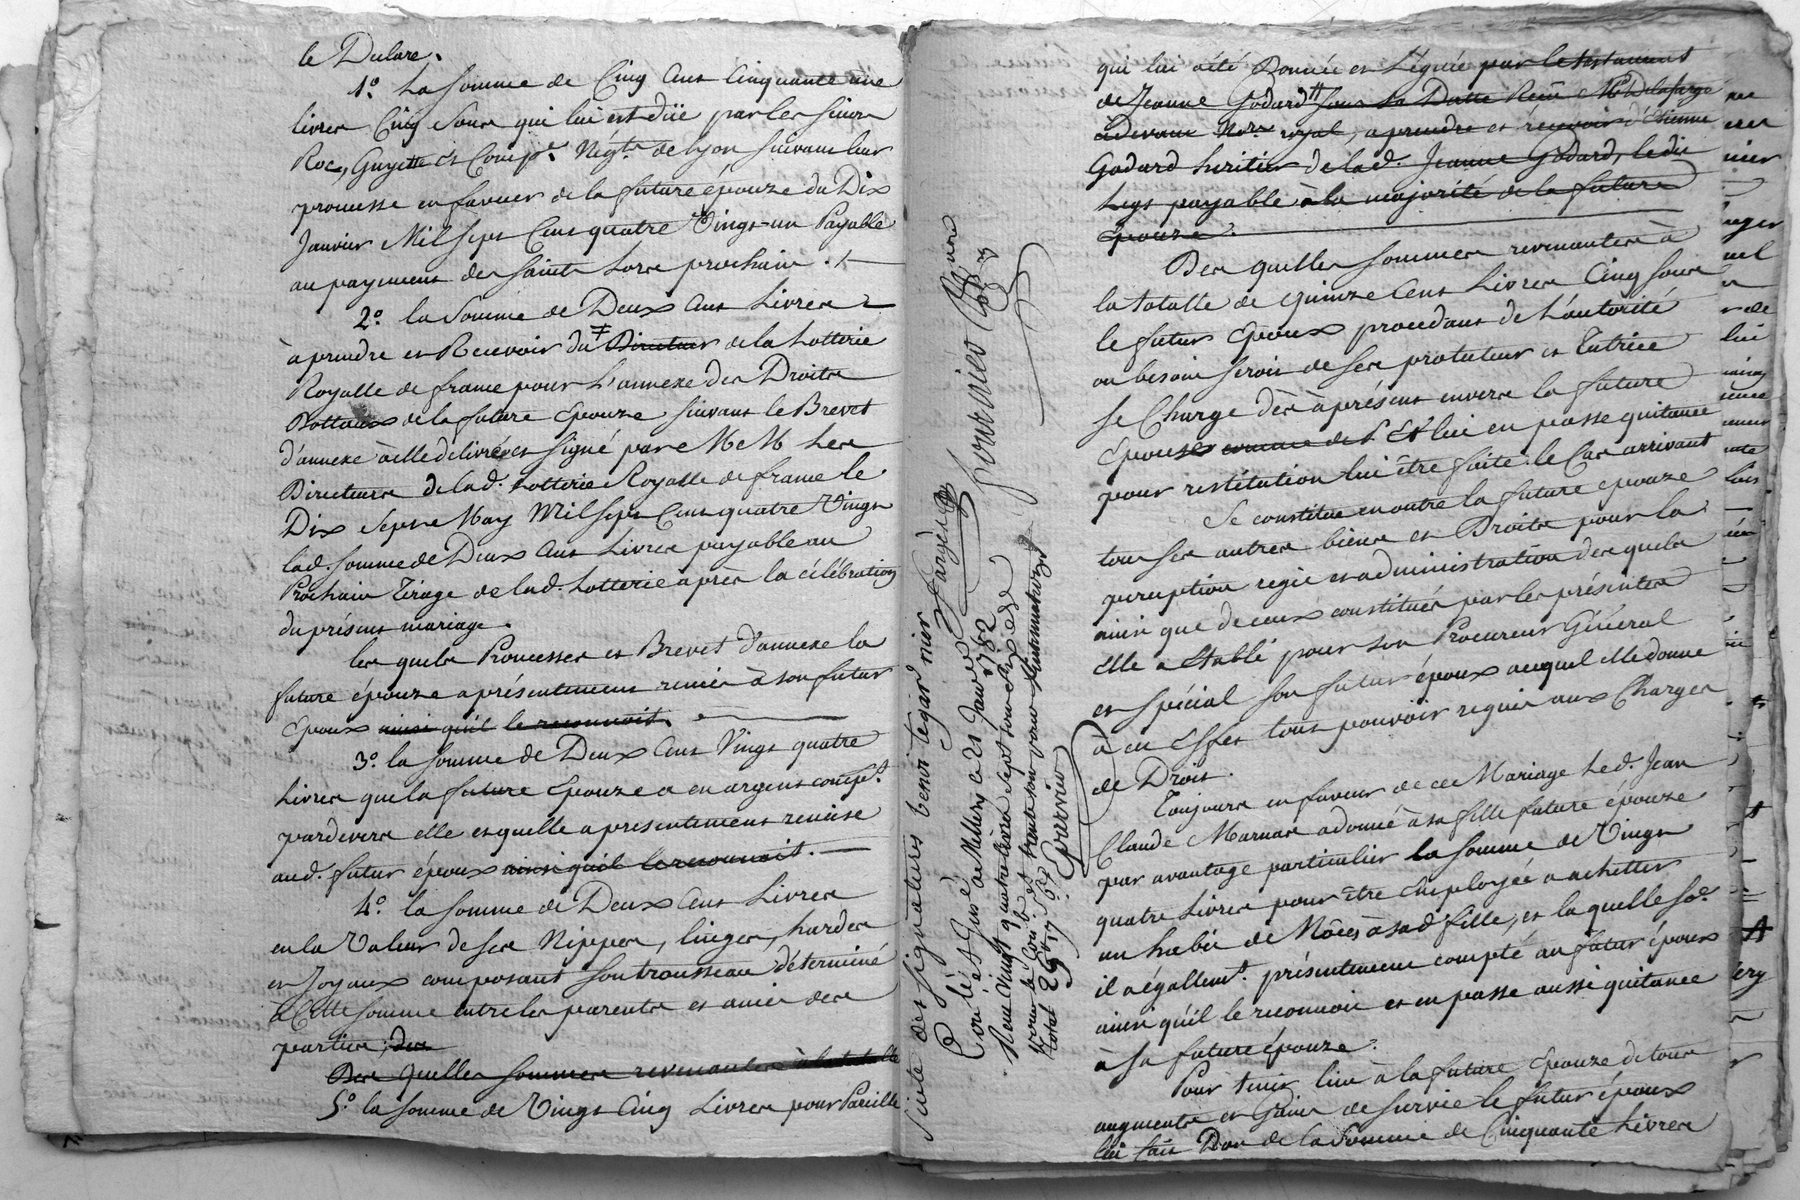 le Declare.
1.º La Somme de Cinq Cent Cinquante une
livres Cinq Sous qui lui est düe par les sieurs
Roc, Guyette et Comp.e Négts de Lyon suivant leur
promesse en faveur de la future épouze du Dix
Janvier Mil Sept Cent quatre Vingt un Payable
au payement des Saints prochain.
2.º la Somme de Deux Cent Livres
à prendre et Recevoir du Directeur de la Lotterie
Royalle de france pour l'annexe des Droits
Dottaux de la future Epouze suivant le Brevet
d'annexe à elle delivré et signé par MM Les
Directeurs de lad. Lotterie Royalle de france le
Dix Sept May Mil Sept Cent quatre Vingt
lad. somme de Deux Cent Livres payable au
Prochain Tirage de lad. Lotterie après la célébration
du présent mariage.
les quels Promesses et Brevet d'annexe la
future épouze a présentement remis à son futur
Epoux ainsi qu'il le reconnoit.
3.º la somme de Deux Cent Vingt quatre
Livres que la future Epouze a en argent compt.
pardevers elle et quelle a présentement remise
aud. futur époux ainsi qu'il le reconnoit.
4.º la somme de Deux Cent Livres
en la Valeur de ses Nippes, linges, hardes
et Joyaux composant son trousseau déterminé
à Cette somme entre les parents et amis des
parties; des
Des quelles sommes revenantes à la totalle
5.º la somme de Vingt Cinq Livres pour Pareille
Suite des signatures
Fournier
Conlé et Gné à Millery ce 21 Janv. 1782
Reçu Vingt quatre livres sept sous six d.
Total 29lt 17s
qui lui a été Donnée et Léguée par le testament
de Jeanne Godard sous Sa Datte Reçu Me Delafarge
Cidevant Nore royal, a prendre et recevoir d'Etienne
Godard heritier de lad. Jeanne Godard, le dit
Legs payable à la majorité de la future
Epouze.
Des quelles sommes revenantes à
la totalle de quinze Cent Livres Cinq Sous
le futur Epoux procedant de L'autorité
ou besoin seroit de ses protuteur et Tutrice
se Charge dès à présent envers la future
Epouse comme de S. Et lui en passe quitance
pour restitution lui être faite le Cas arrivant
Se constitue en outre la future epouze
tous ses autres biens et Droits pour la
perception regie et administration des quels
ainsi que de ceux constitués par les présentes
elle a Etabli pour son Procureur Général
et spécial son futur époux auquel elle donne
à cet effet tout pouvoir requis aux Charges
de Droit.
Toujours en faveur de ce Mariage Led. Jean
Claude Marnas a donné à sa fille future épouze
par avantage particulier la somme de Vingt
quatre Livres pour être Employée a achetter
un habit de Nôces à sad. fille, et la quelle se.
il a égallemt. présentement compté au futur époux
ainsi qu'il le reconnoit et en passe aussi quitance
à sa future épouze.
Pour tenir lieu à la future Epouze de tous
augments et Gains de Survie le futur époux
lui fait Don de la Somme de Cinquante Livres